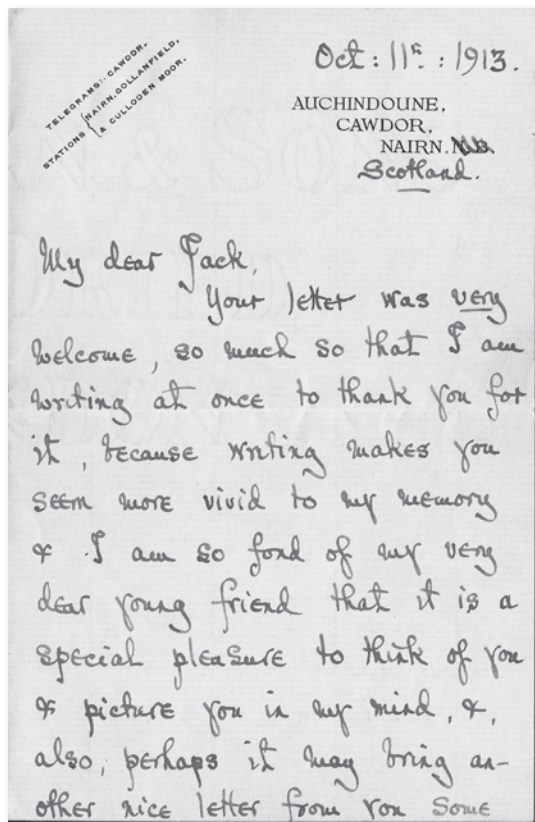 TELEGRAMS:- CAWDOR.
STATIONS { NAIRN, GOLLANFIELD,
& CULLODEN MOOR.
Oct: 11th: 1913.
AUCHINDOUNE,
CAWDOR,
NAIRN. N.B.
Scotland.
My dear Jack,
Your letter was very
welcome, so much so that I am
writing at once to thank you for
it, because writing makes you
seem more vivid to my memory
& I am so fond of my very
dear young friend that it is a
special pleasure to think of you
& picture you in my mind, &,
also, perhaps it may bring an-
other nice letter from you some